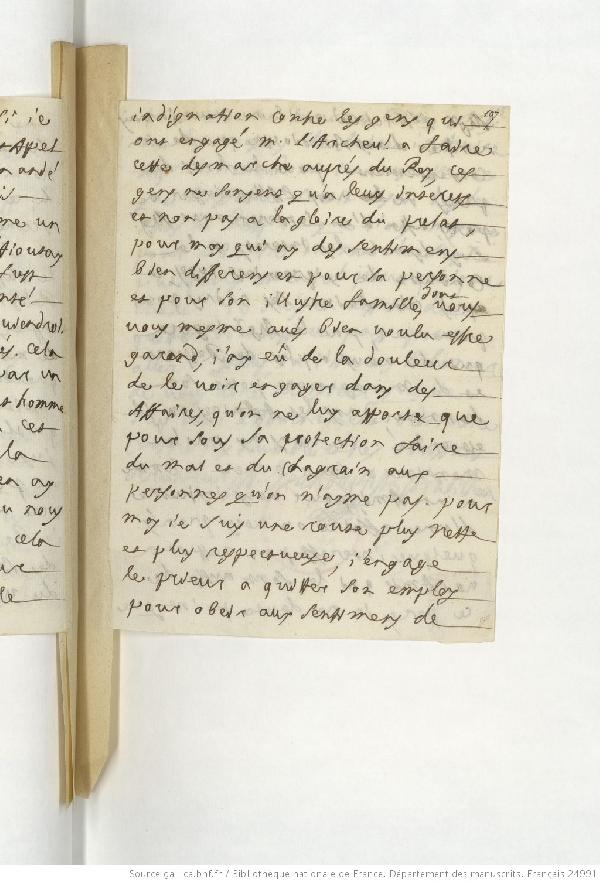 si ie
indignation contre les gens qui
ont engagé m. l'Archeu. a faire
cette desmarche auprés du Roy, ces
gens ne songent qu'a leurs interests
et non pas a la gloire du prelat,
pour moy qui ay des sentimens
bien differens et pour sa personne
et pour son illustre famille, dont vous
vous mesme aués bien voulu estre
garand, j'ay eû de la douleur
de le voir engager dans des
Affaires, qu'on ne luy apporte que
pour sous sa protection faire
du mal et du chagrain aux
personnes qu'on n'ayme pas. pour
moy ie suis une route plus nette
et plus respectueuse, j'engage
le prieur a quitter son employ
pour obeir aux sentimens de
me un
cela
par un
homme
cet
la
en ay
u nous
cela
le
Source gallica.bnf.fr / Bibliothèque nationale de France. Département des manuscrits. Français 24991